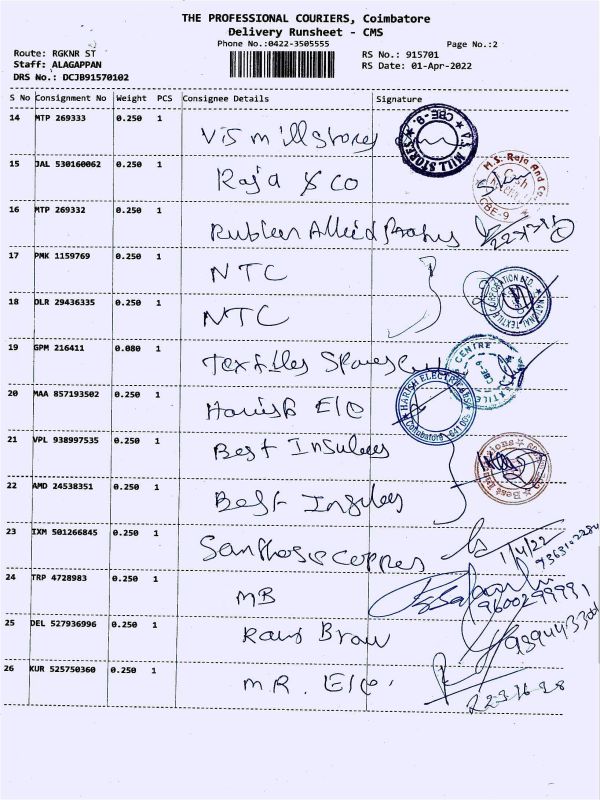 THE PROFESSIONAL COURIERS, Coimbatore
Delivery Runsheet - CMS
Phone No.:0422-3505555
Page No.:2
Route: RGKNR ST
Staff: ALAGAPPAN
DRS No.: DCJB91570102
RS No.: 915701
RS Date: 01-Apr-2022
S No Consignment No Weight PCS Consignee Details Signature
14 MTP 269333 0.250 1 VS mill stores
V.S. MILL STORES CBE-9.
15 JAL 530160062 0.250 1 Raja & Co
M.S. Raja And Co. CBE-9
16 MTP 269332 0.250 1 Rubber Allied
17 PMK 1159769 0.250 1 NTC
18 DLR 29436335 0.250 1 NTC
NATIONAL TEXTILE CORPORATION LTD.
19 GPM 216411 0.080 1 Textiles Spares
CENTRE CBE-9
20 MAA 857193502 0.250 1 Harish Ele
HARISH ELECTRICALS Coimbatore - 641 009
21 VPL 938997535 0.250 1 Best
22 AMD 24538351 0.250 1 Best
23 IXM 501266845 0.250 1 Santhosh Copper
1/4/22
24 TRP 4728983 0.250 1 MB
9600299991
25 DEL 527936996 0.250 1 Ravi
26 KUR 525750360 0.250 1 M.R. Ele